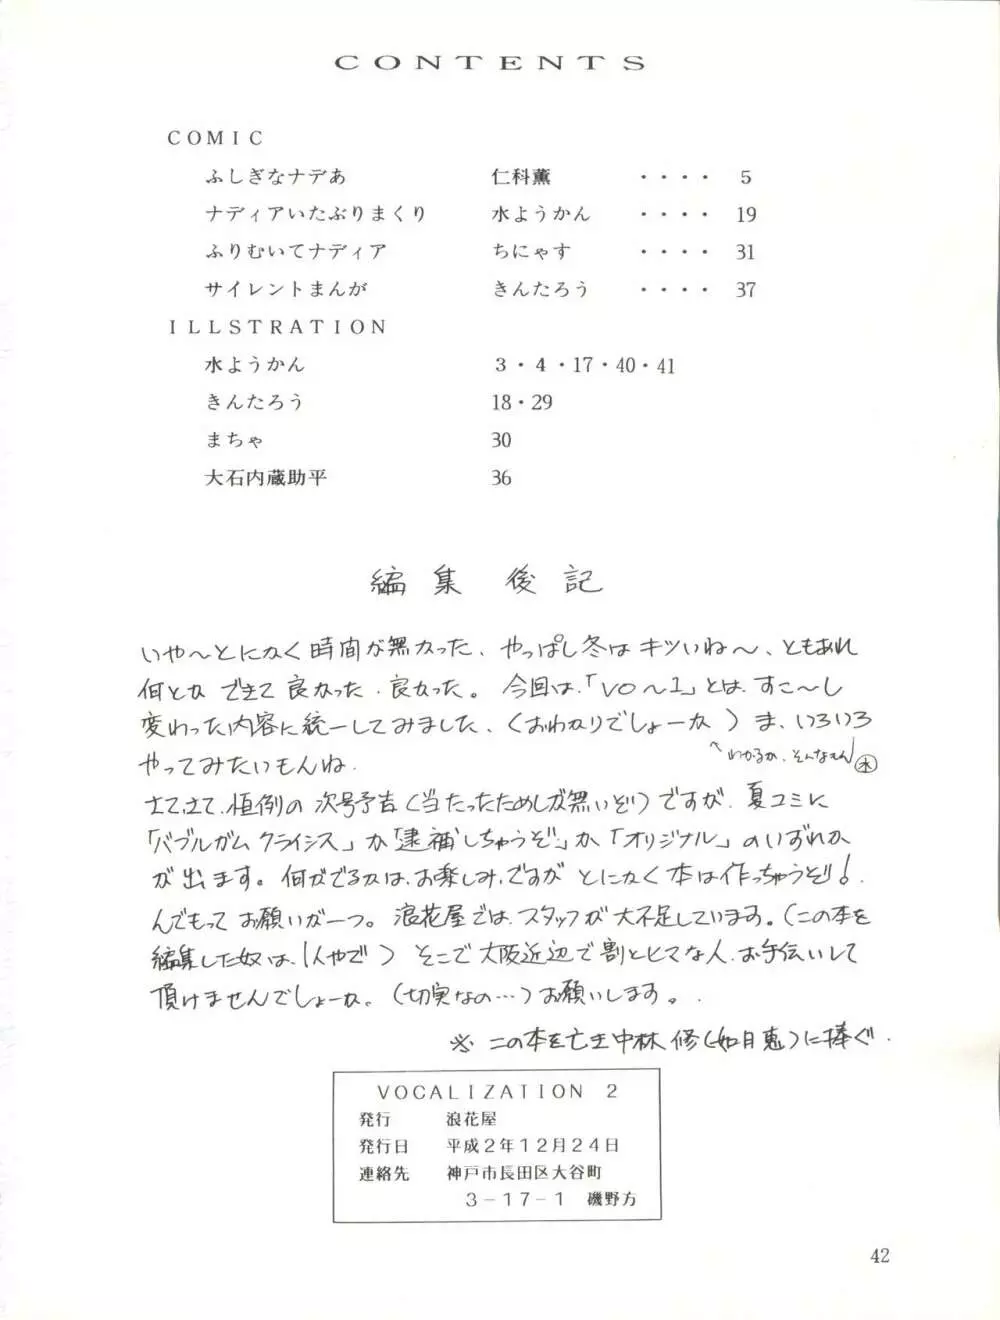 CONTENTS
COMIC
ふしぎなナデあ 仁科薫 ・・・・ 5
ナディアいたぶりまくり 水ようかん ・・・・ 19
ふりむいてナディア ちにゃす ・・・・ 31
サイレントまんが きんたろう ・・・・ 37
ILLSTRATION
水ようかん 3・4・17・40・41
きんたろう 18・29
まちゃ 30
大石内蔵助平 36
編集後記
いや〜とにかく時間が無かった、やっぱし冬はキツいね〜、ともあれ
何とか できて 良かった、良かった。今回は、「VO〜1」とは、すこ〜し
変わった内容に統一してみました、(おわかりでしょーか)ま、いろいろ
やってみたいもんね、
へわかるか、そんなもん 水
さて、さて、恒例の 次号予告(当たったためしが無いぞ!)ですが、夏コミに
「バブルガムクライシス」か「逮捕しちゃうぞ」か「オリジナル」のいずれか
が出ます。何がでるかは、お楽しみ、ですが とにかく本は作っちゃうぞ!
んでもって お願いが一つ。浪花屋では、スタッフが大不足しています。(この本を
編集した奴は、1人やで) そこで大阪近辺で割とヒマな人、お手伝いして
頂けませんでしょーか。(切実なの…)お願いします。
※ この本を亡き中林 修(如月恵)に捧ぐ.
VOCALIZATION 2
発行 浪花屋
発行日 平成2年12月24日
連絡先 神戸市長田区大谷町
3−17−1 磯野方
42